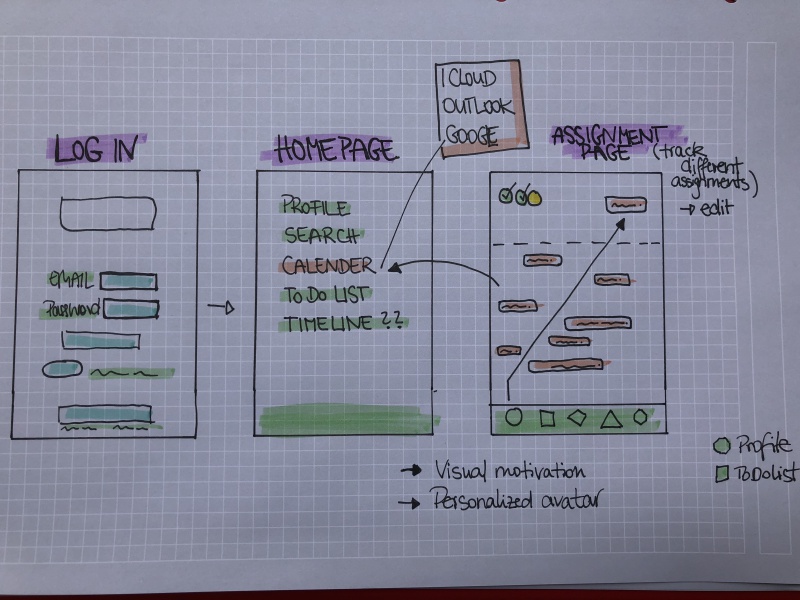 ICLOUD
OUTLOOK
GOOGE
LOG IN
EMAIL
Password
HOMEPAGE
PROFILE
SEARCH
CALENDER
TO DO LIST
TIMELINE ??
ASSIGNMENT
PAGE
(track
different
assignments)
→ edit
→ Visual motivation
→ Personalized avatar
Profile
ToDolist